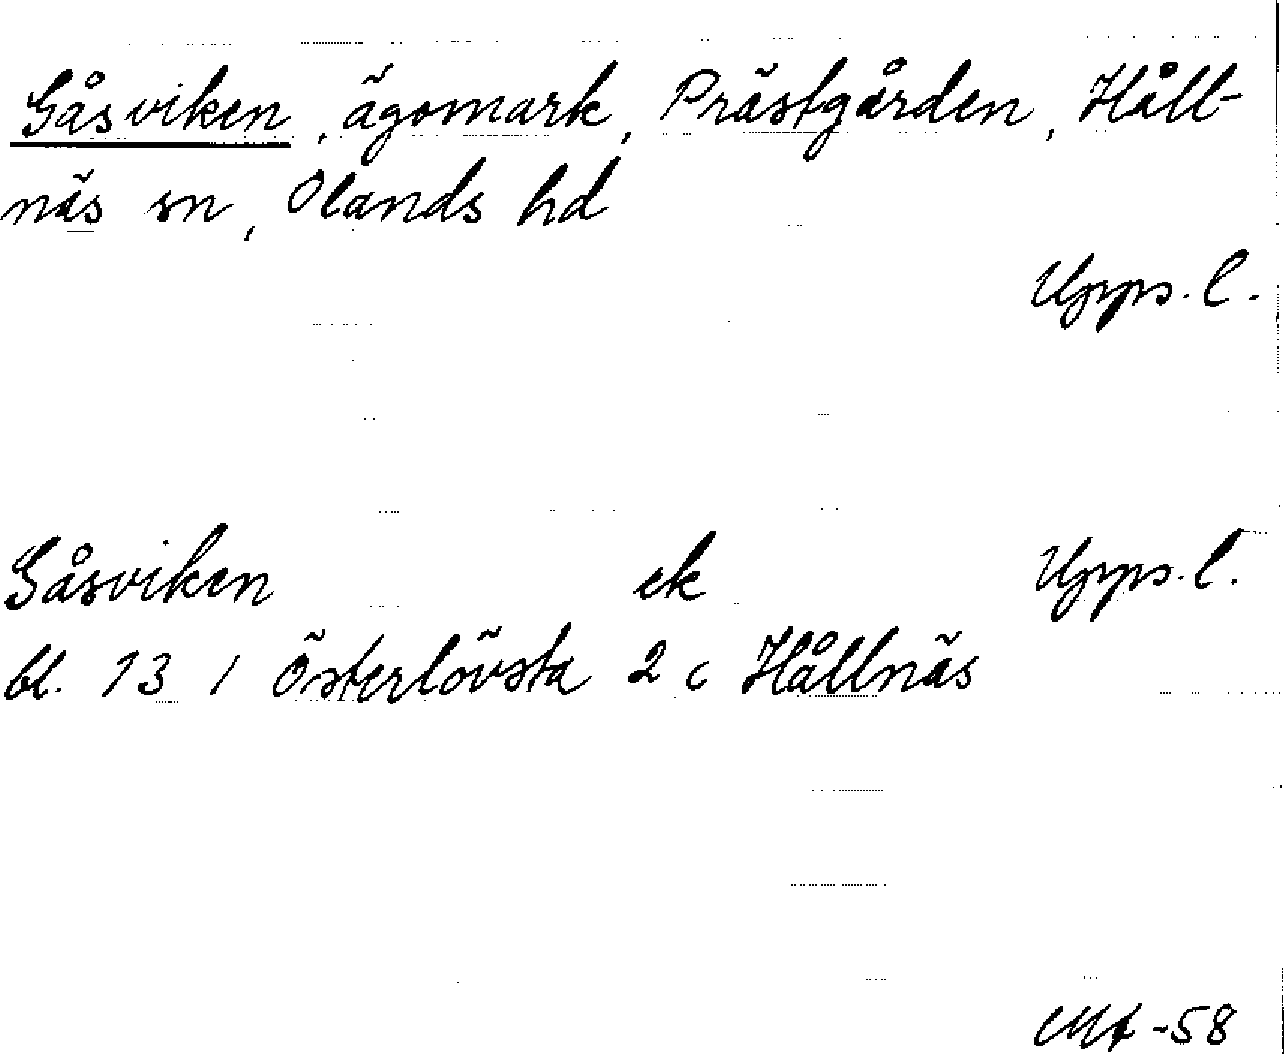 Gåsviken, ägomark, Prästgården, Håll-
näs sn, Olands hd
Upps. l.
Gåsviken ek Upps. l.
bl. 13 / Österlövsta 2 c Hållnäs
-58